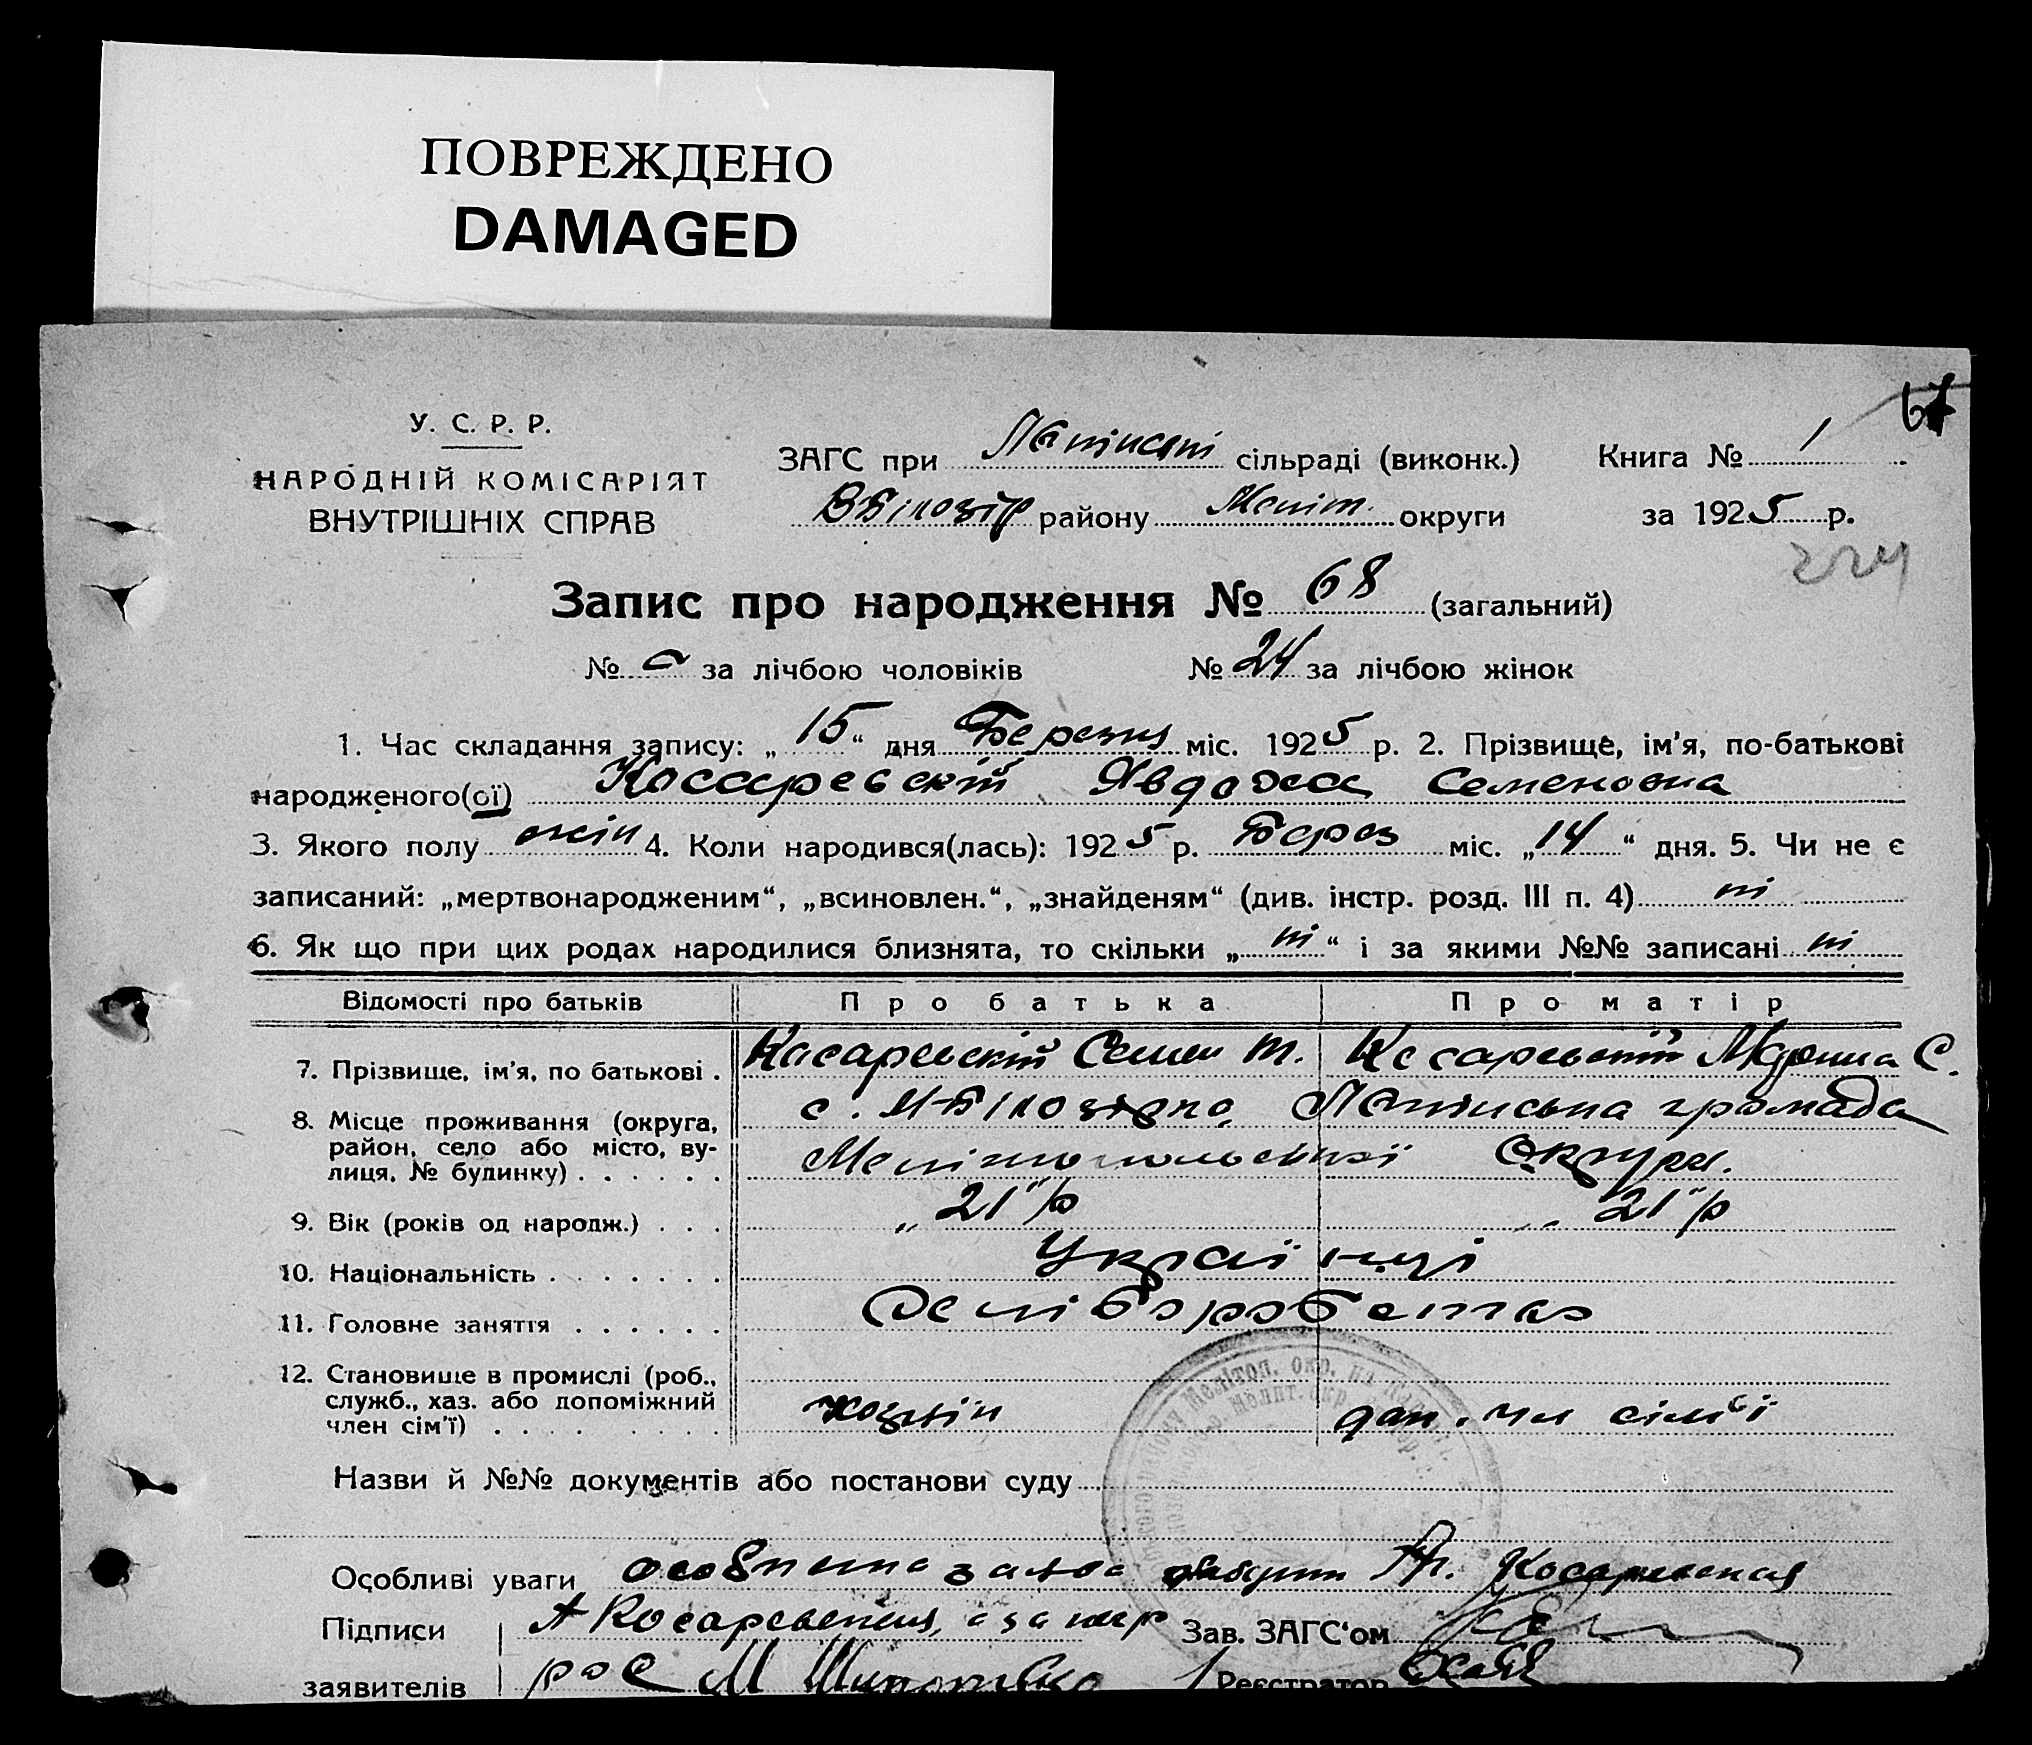 ПОВРЕЖДЕНО
DAMAGED
У. С. Р. Р.
НАРОДНІЙ КОМІСАРІЯТ
ВНУТРІШНІХ СПРАВ
ЗАГС при сільраді (виконк.)
району Меліт. округи
Книга № 1
за 1925 р.
Запис про народження № 68 (загальний)
№ за лічбою чоловіків № 24 за лічбою жінок
1. Час складання запису: „ 15 “ дня міс. 1925 р. 2. Прізвище, ім'я, по-батькові
народженого(ої) Косаревскій Явдоха Семеновна
3. Якого полу жін 4. Коли народився(лась): 1925 р. Берез міс. „ 14 “ дня. 5. Чи не є
записаний: „мертвонародженим“, „всиновлен.“, „знайденям“ (див. інстр. розд. III п. 4) ні
6. Як що при цих родах народилися близнята, то скільки „ ні “ і за якими №№ записані ні
Відомості про батьків Про батька Про матір
7. Прізвище, ім'я, по батькові . Косаревскій Семен Т. Косаревскій С.
8. Місце проживання (округа, район, село або місто, вулиця, № будинку) . . . . . . с. громада
Мелітопольської Округи.
9. Вік (років од народж.) . . . „ 21 “ р „ 21 “ р
10. Національність . . . . . . . Українці
11. Головне заняття . . . . . .
12. Становище в промислі (роб., служб., хаз. або допоміжний член сім'ї) . . . . . . . . хозяїн доп. чл сімʼї
Назви й №№ документів або постанови суду
Особливі уваги особиста заява Косаревская
Підписи заявителів Косаревский, а за
М
Зав. ЗАГС'ом
Реєстратор